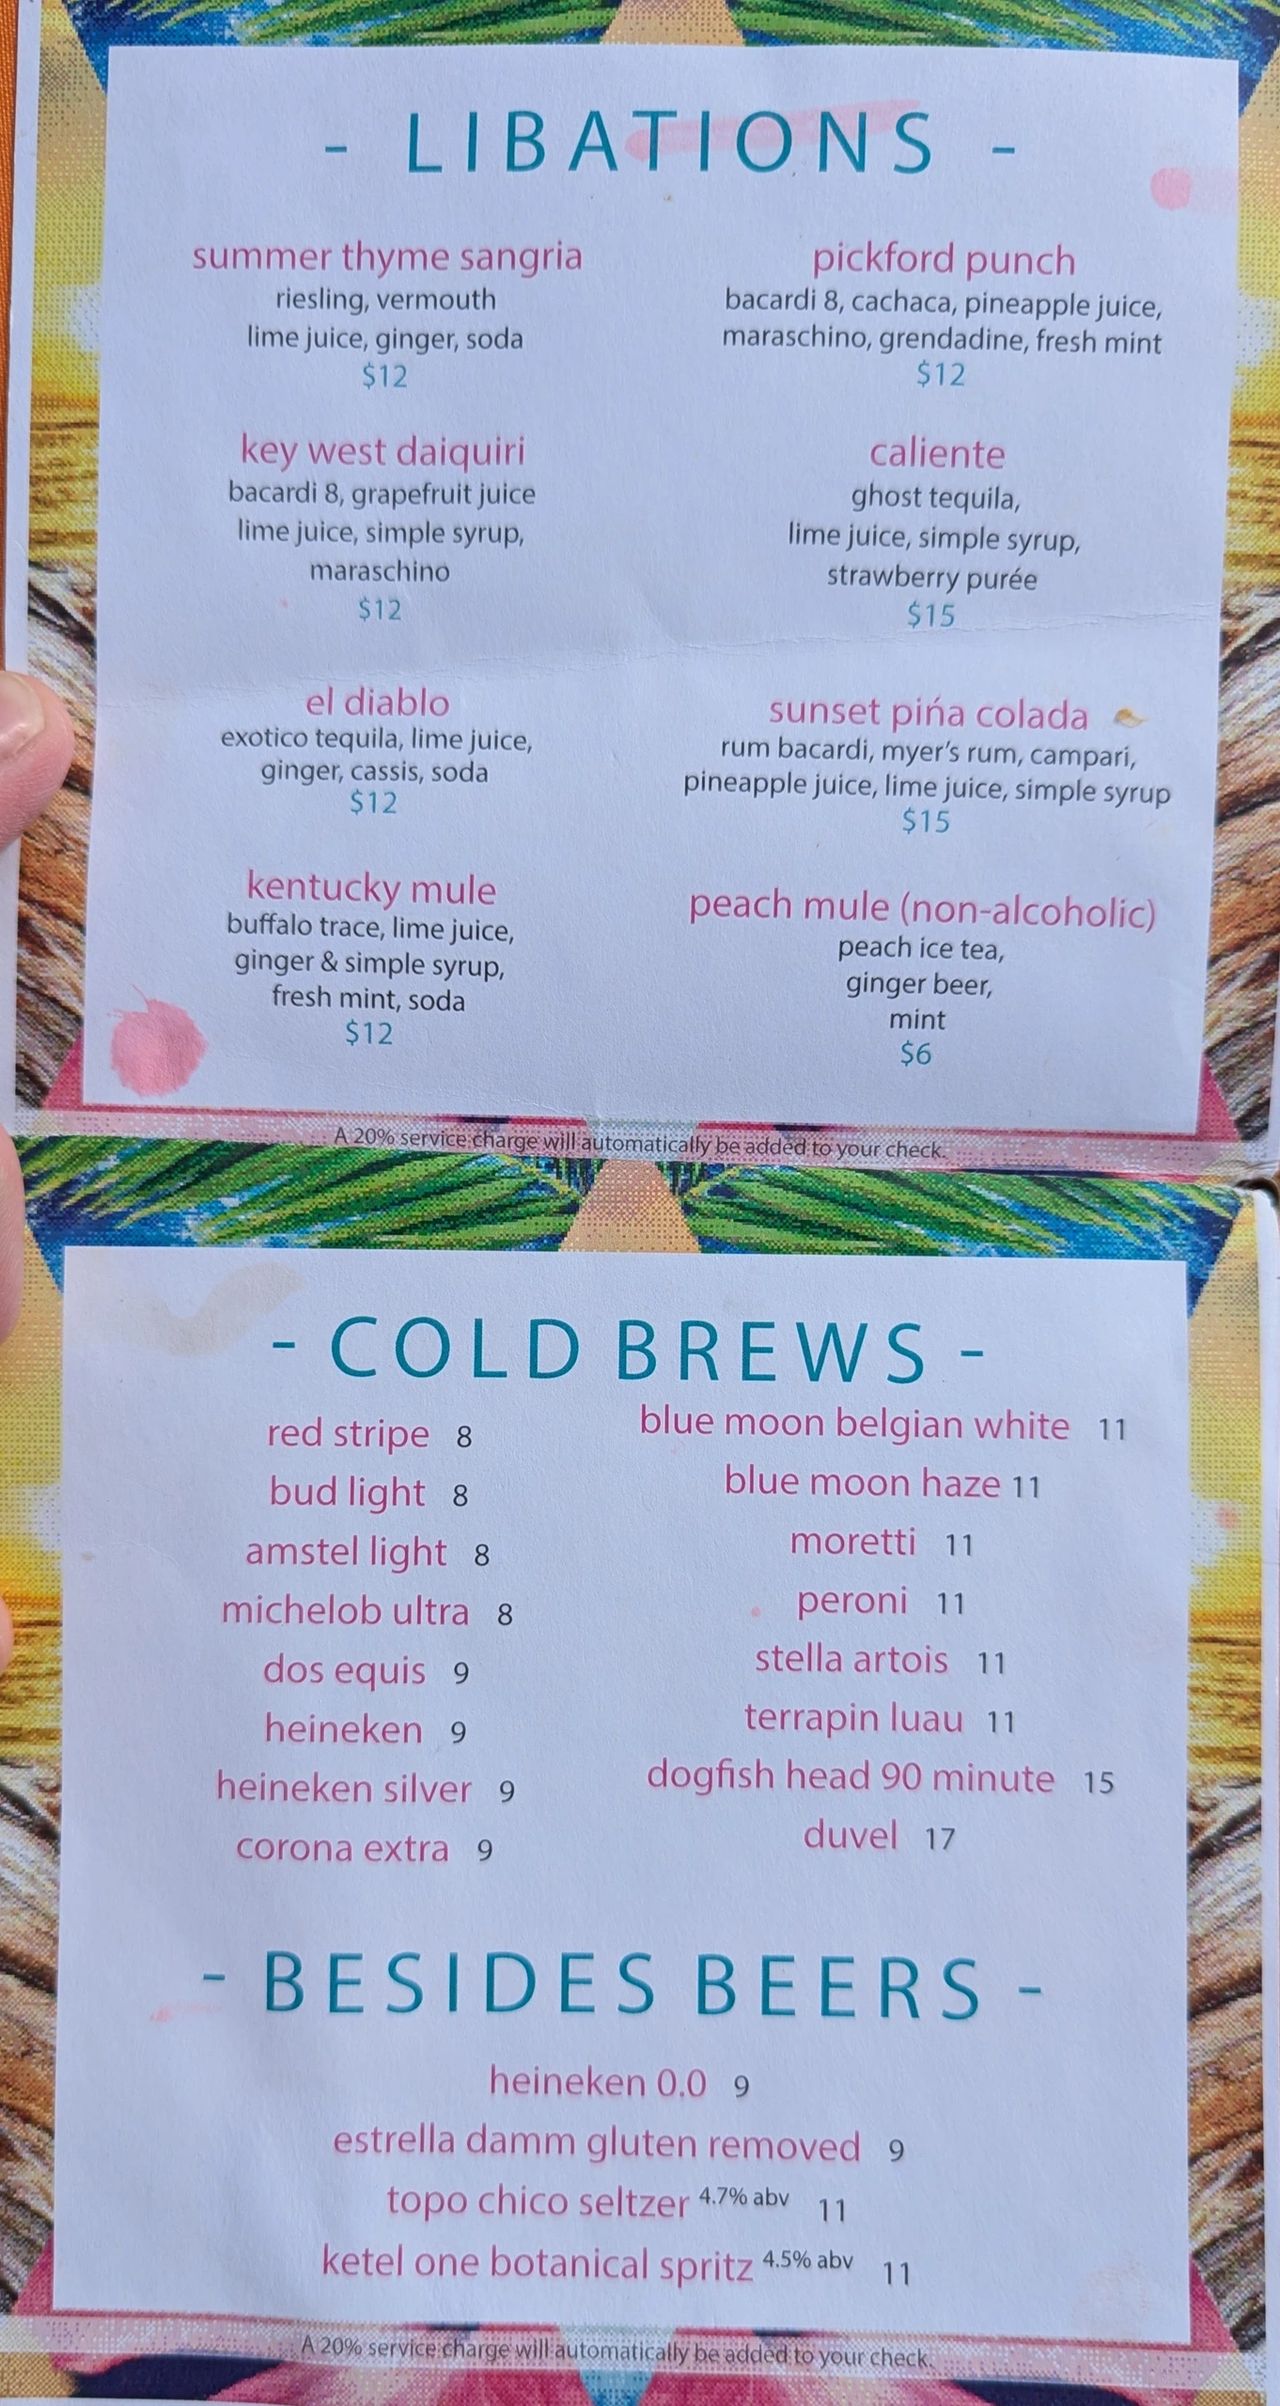 - LIBATIONS -
summer thyme sangria
riesling, vermouth
lime juice, ginger, soda
$12
key west daiquiri
bacardi 8, grapefruit juice
lime juice, simple syrup,
maraschino
$12
el diablo
exotico tequila, lime juice,
ginger, cassis, soda
$12
kentucky mule
buffalo trace, lime juice,
ginger & simple syrup,
fresh mint, soda
$12
pickford punch
bacardi 8, cachaca, pineapple juice,
maraschino, grendadine, fresh mint
$12
caliente
ghost tequila,
lime juice, simple syrup,
strawberry purée
$15
sunset pińa colada
rum bacardi, myer's rum, campari,
pineapple juice, lime juice, simple syrup
$15
peach mule (non-alcoholic)
peach ice tea,
ginger beer,
mint
$6
A 20% service charge will automatically be added to your check.
- COLD BREWS -
red stripe 8
bud light 8
amstel light 8
michelob ultra 8
dos equis 9
heineken 9
heineken silver 9
corona extra 9
blue moon belgian white 11
blue moon haze 11
moretti 11
peroni 11
stella artois 11
terrapin luau 11
dogfish head 90 minute 15
duvel 17
- BESIDES BEERS -
heineken 0.0 9
estrella damm gluten removed 9
topo chico seltzer 4.7% abv 11
ketel one botanical spritz 4.5% abv 11
A 20% service charge will automatically be added to your check.